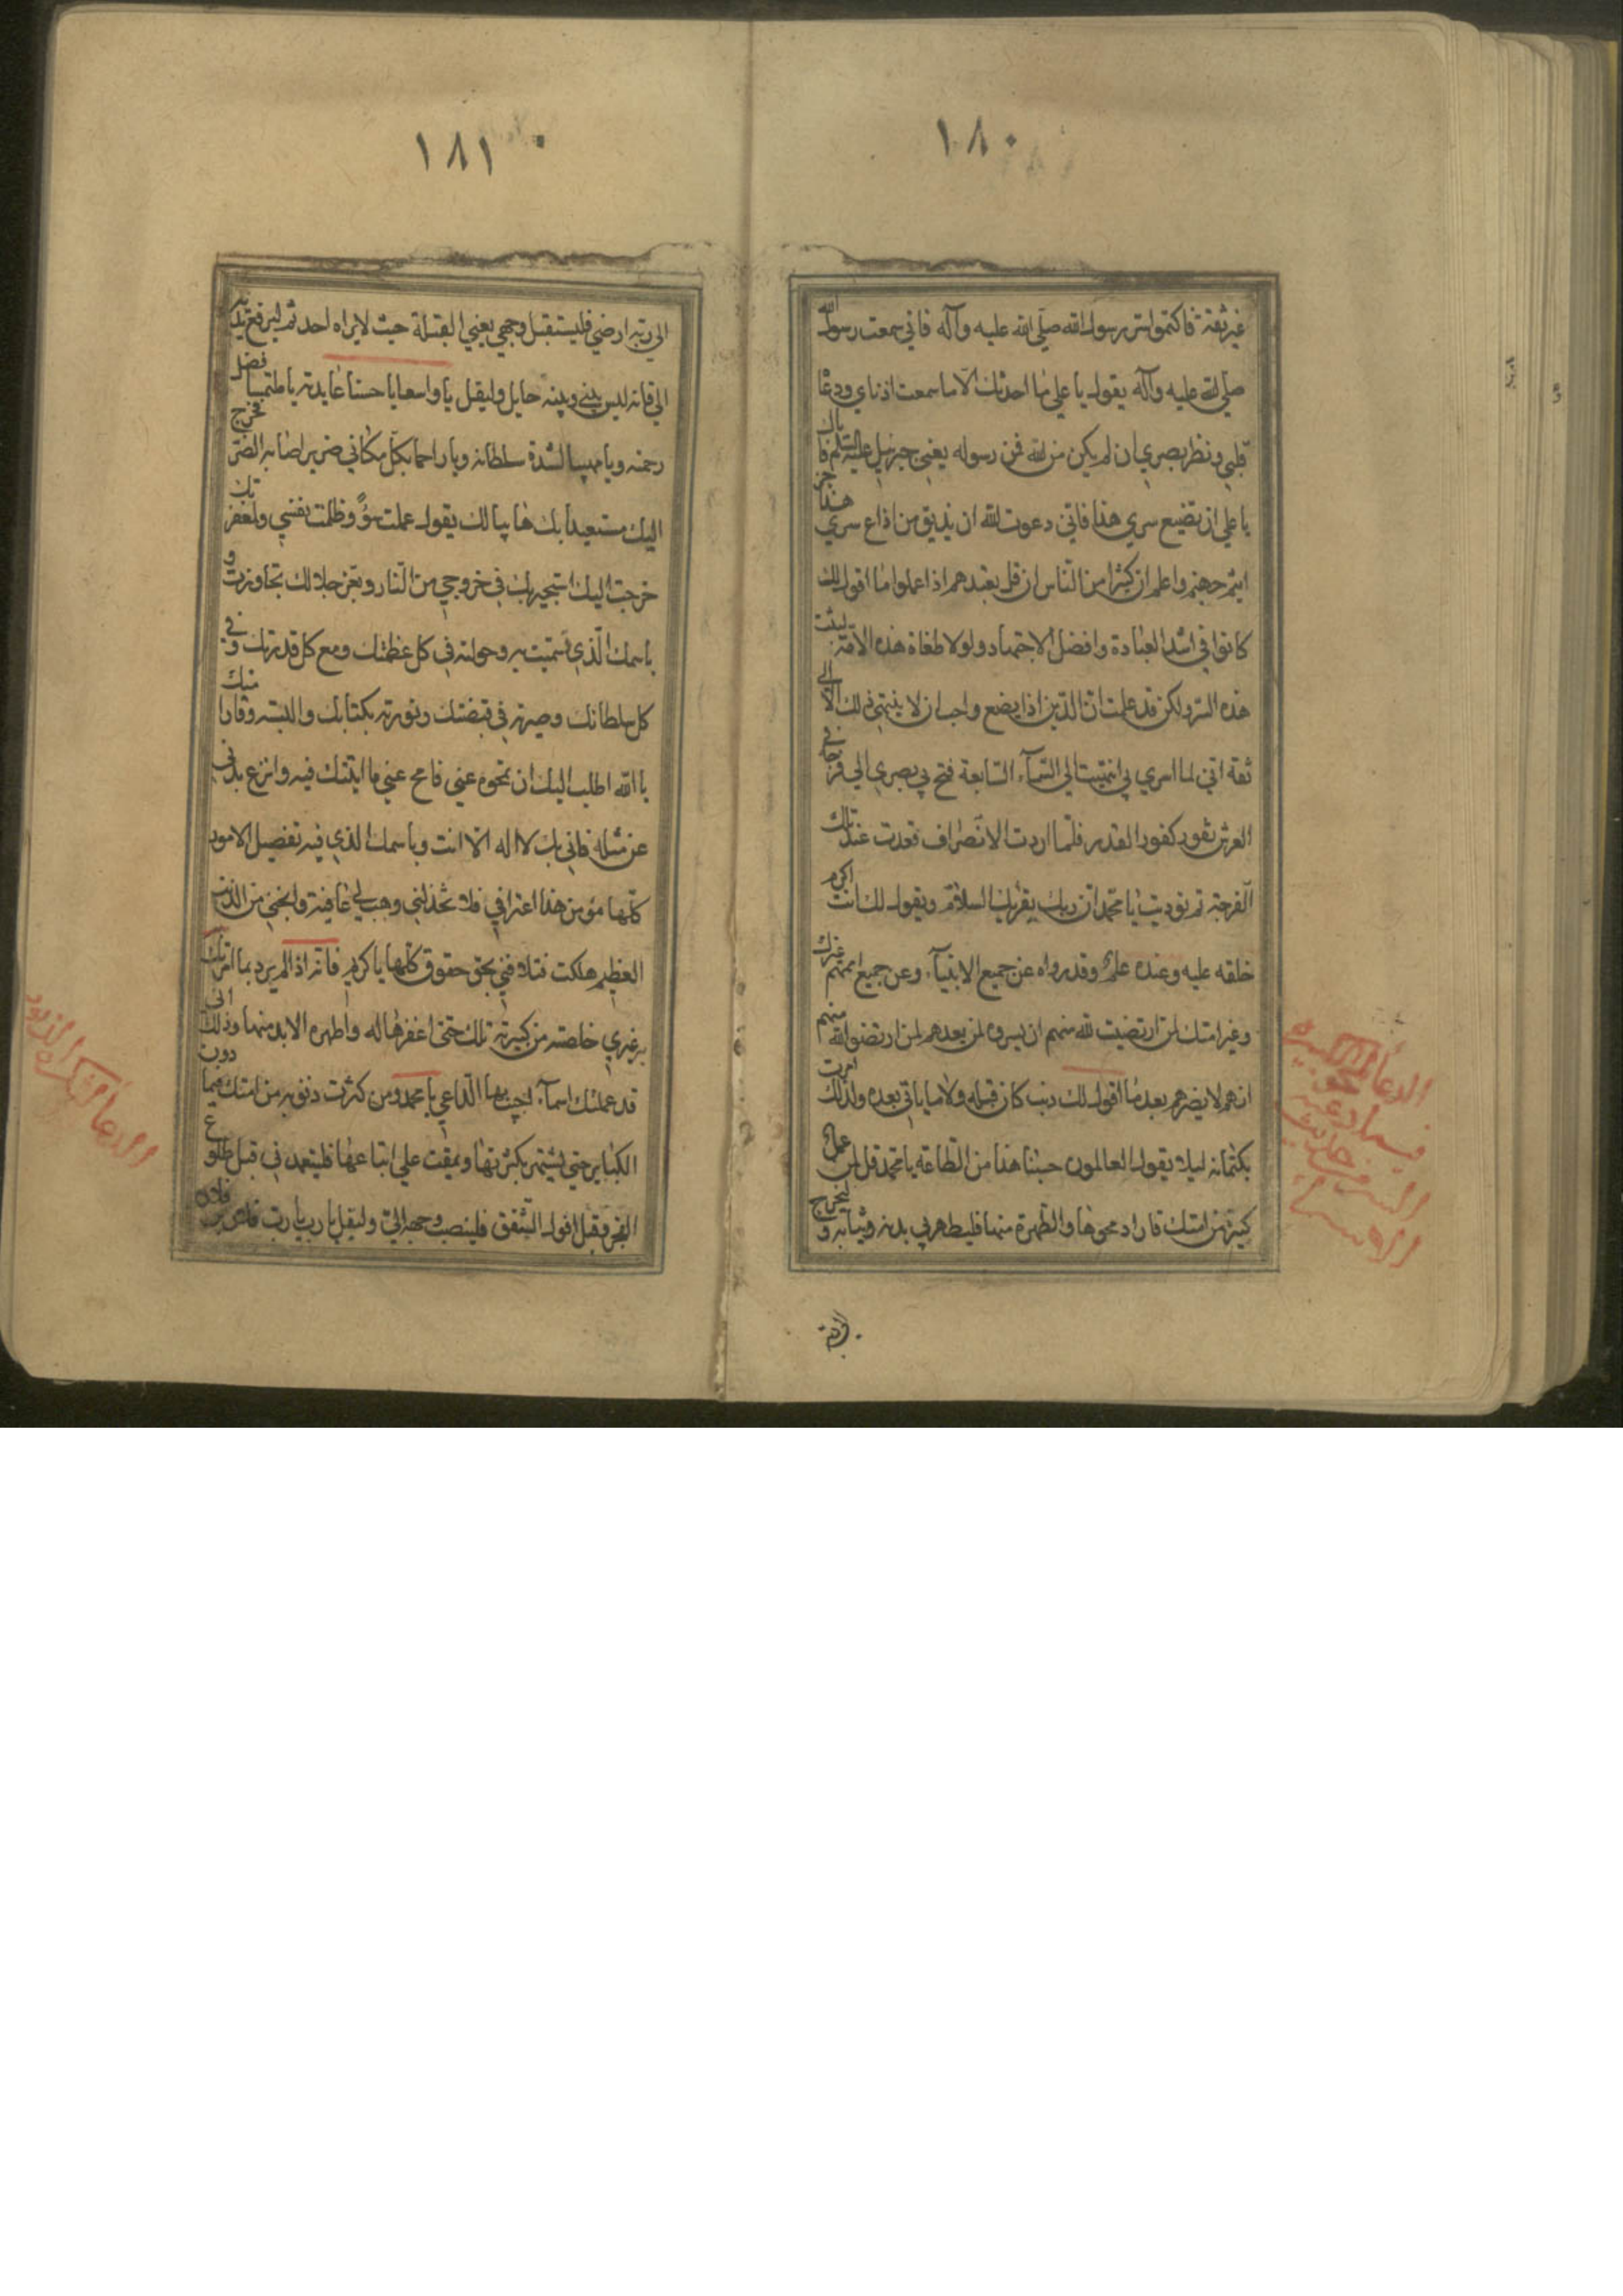 ١٨٠
غير ثقة فاكتموا سر رسول الله صلى الله عليه وآله فاني سمعت رسول الله
صلى الله عليه وآله يقول يا علي ما احدثك الا ما سمعت اذناي ووعا
قلبي ونظر بصري ان لم يكن من الله فمن رسوله يعني جبرئيل عليه السلم فاياك
يا علي ان تضيع سري هذا فاني دعوت الله ان يذيق من اذاع سري هذا حر
ايثم جهنم واعلم ان كثيرا من الناس ان قل تعبدهم اذا علموا ما اقول لك
كانوا في اشد العبادة وافضل الاجتهاد ولولا طغاة هذه الامة لبثت
هذه السر ولكن قد علمت ان الدين اذا يضيع واحب ان لا ينتهي ذلك الا الى
ثقة اني لما اسري بي انتهيت الى السمآء السابعة فتح لي بصري الى فرجة في
العرش تفور كفور القدر فلما اردت الانصراف قعدت عند تلك
الفرجة ثم نوديت يا محمد ان ربك يقرئك السلام ويقول لك انت اكرم
خلقه عليه وعنده علم وقد رواه عن جميع الانبيآء وعن جميع اممهم غيرك
وغير امتك لمن ارتضيت لله منهم ان يسروه لمن بعدهم لمن ارتضوا لله منهم
انهم لا يضرهم بعد ما اقول لك ذنب كان قبله ولا ما ياتي بعده ولذلك امرت
بكتمانه ليلا يقول العالمون حسبنا هذا من الطاعة يا محمد قل لمن عمل
كبيرة من امتك فاراد محوها والطهرة منها فليطهر لي بدنه وثيابه وليخرج
١٨١
الى برية ارضي فليستقبل وجهي يعني القبلة حيث لا يراه احد ثم ليرفع يديه
الي فانه ليس بيني وبينه حايل وليقل يا واسعا يا حسنا عايدته يا ملتمسا فضل
رحمته ويا مهيبا لشدة سلطانه ويا راحما بكل مكاني ضرير اصابه الضر فخرج
اليك مستعيدا بك هايبا لك يقول عملت سوءً وظلمت نفسي ولمغفرتك
خرجت اليك استجير بك في خروجي من النار وبعز جلالك تجاوزت و
باسمك الذي تسميت به وجعلته في كل عظمتك ومع كل قدرتك وفي
كل سلطانك وصيرته في قبضتك ونورته بكتابك والبسته وقارا منك
يا الله اطلب اليك ان تمحوه عني فامح عني ما اتيتك فيه وانزع بدني
عن مثله فاني بك لا اله الا انت وباسمك الذي فيه تفصيل الامور
كلها مؤمن هذا اعترافي فلا تخذلني وهب لي عافية وانجني من الذنب
العظيم هلكت فتلافني بحق حقوق كلها يا كريم فانه اذا لم يرد بما امرتك
به غيري خلصته من كبيرته تلك حتى اغفرها له واطهره الابد منها وذلك اني
قد علمتك اسمآء اجيب بها الداعي يا محمد ومن كثرت ذنوبه من امتك فيما دون
الكباير حتى يشتهر بكثرتها ويمقت على اتباعها فليتعمدني قبل طلوع
الفجر وقبل افول الشفق فلينصب وجهه الي وليقل يا رب يا رب فلان بن فلان